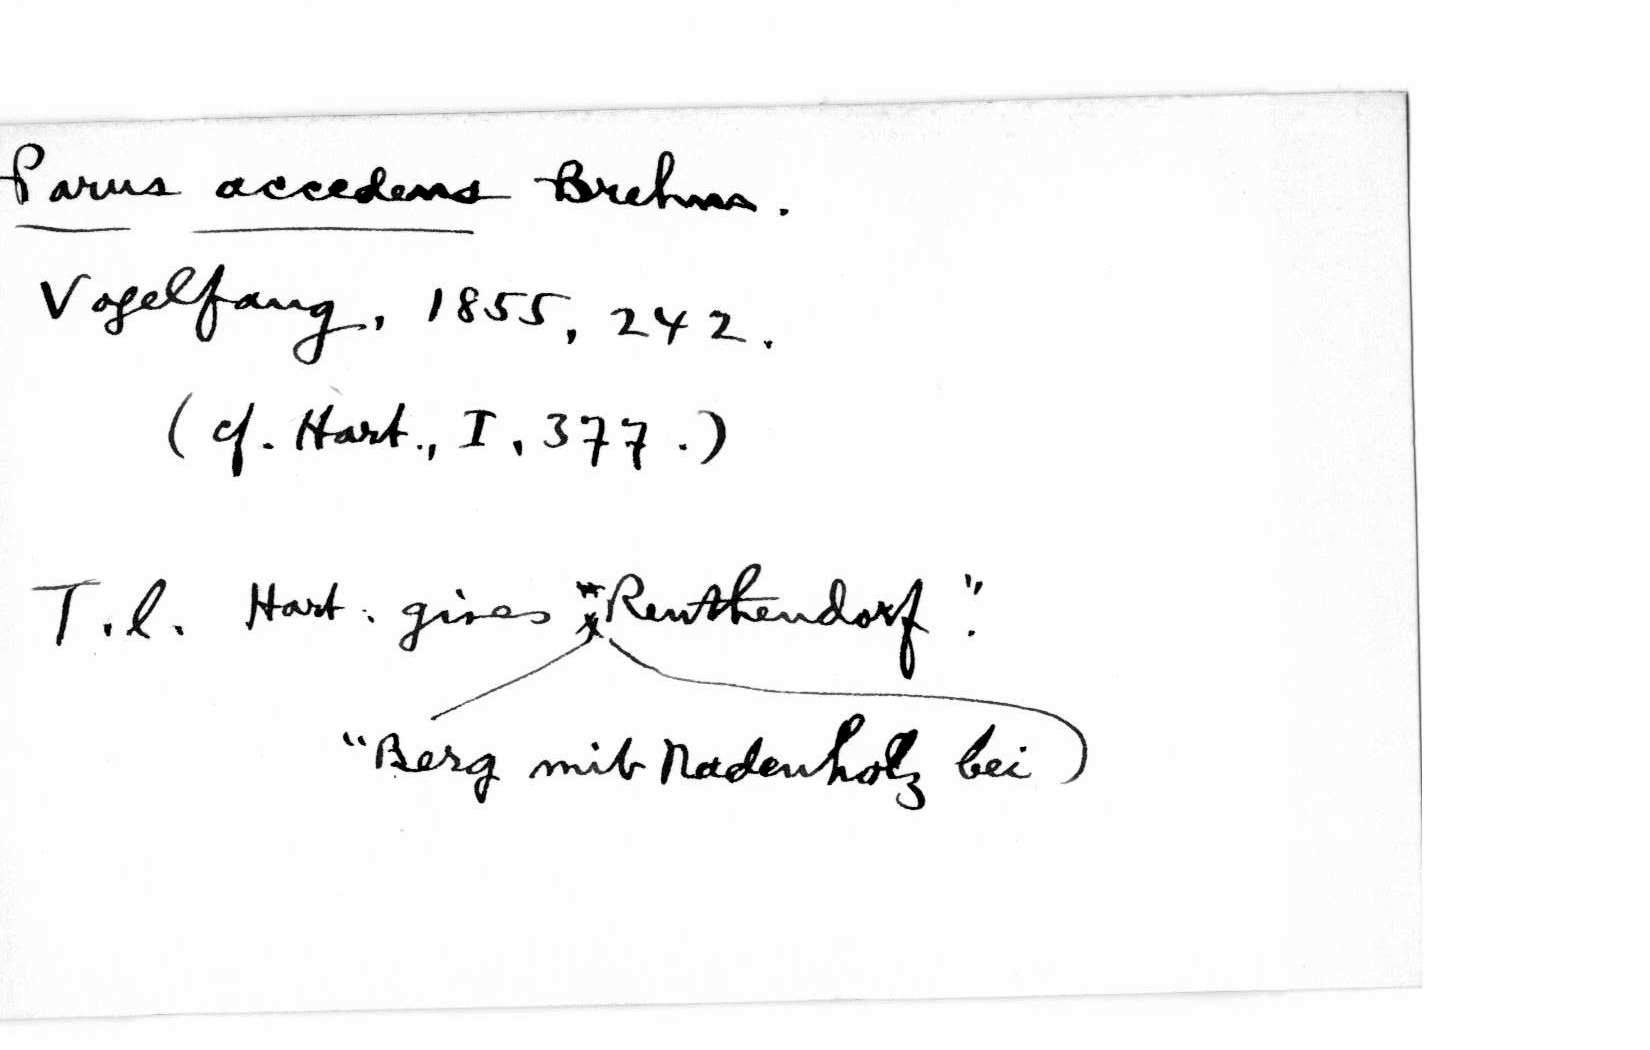 Parus accedens Brehm.
Vogelfang, 1855, 242.
(cf. Hart., I, 377.)
T.l. Hart. gives "Renthendorf".
"Berg mit Nadenholz bei